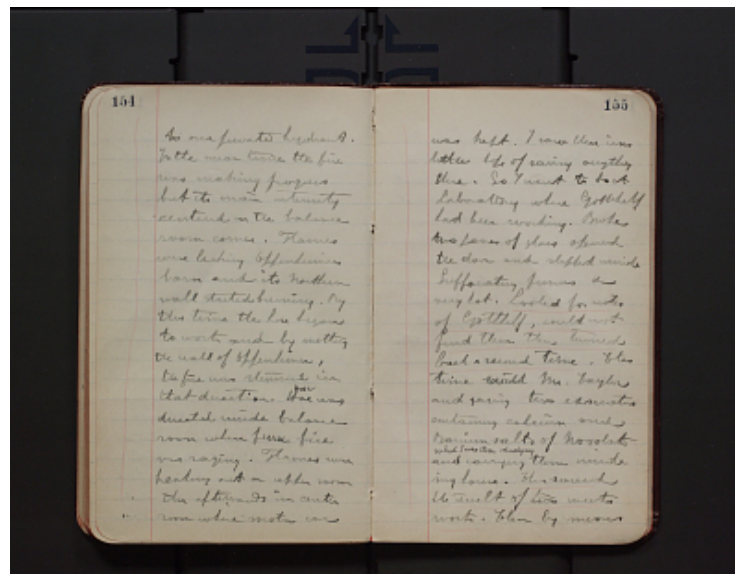 154
to our private hydrant.
In the mean time the fire
was making progress
but its main intensity
centered in the balance
room corner. Flames
were licking Oppenheimers
barn and its Northern
wall started burning. By
this time the hose began
to work and by wetting
the wall of Oppenheim,
the fire was stemmed in
that direction. Hose was
directed inside balance
room where fire
was raging. Flames were
out in upper room
then afterwards in outer
room where motor car
155
was kept. I saw there was
little hope of saving anything
there. So I went to back
Laboratory where Gottlelf
had been working. Broke
two panes of glass opened
the door and stepped inside
Suffocating fumes &
very hot. Looked for notes
of Gottlelf, could not
find them then turned
back a second time. This
time Mr. Taylor
and saving two exsiccators
containing calcium and
Barium salts of Novolak
which I was then studying
and carrying them inside
my house. This saved
the result of two weeks
work. Then by means